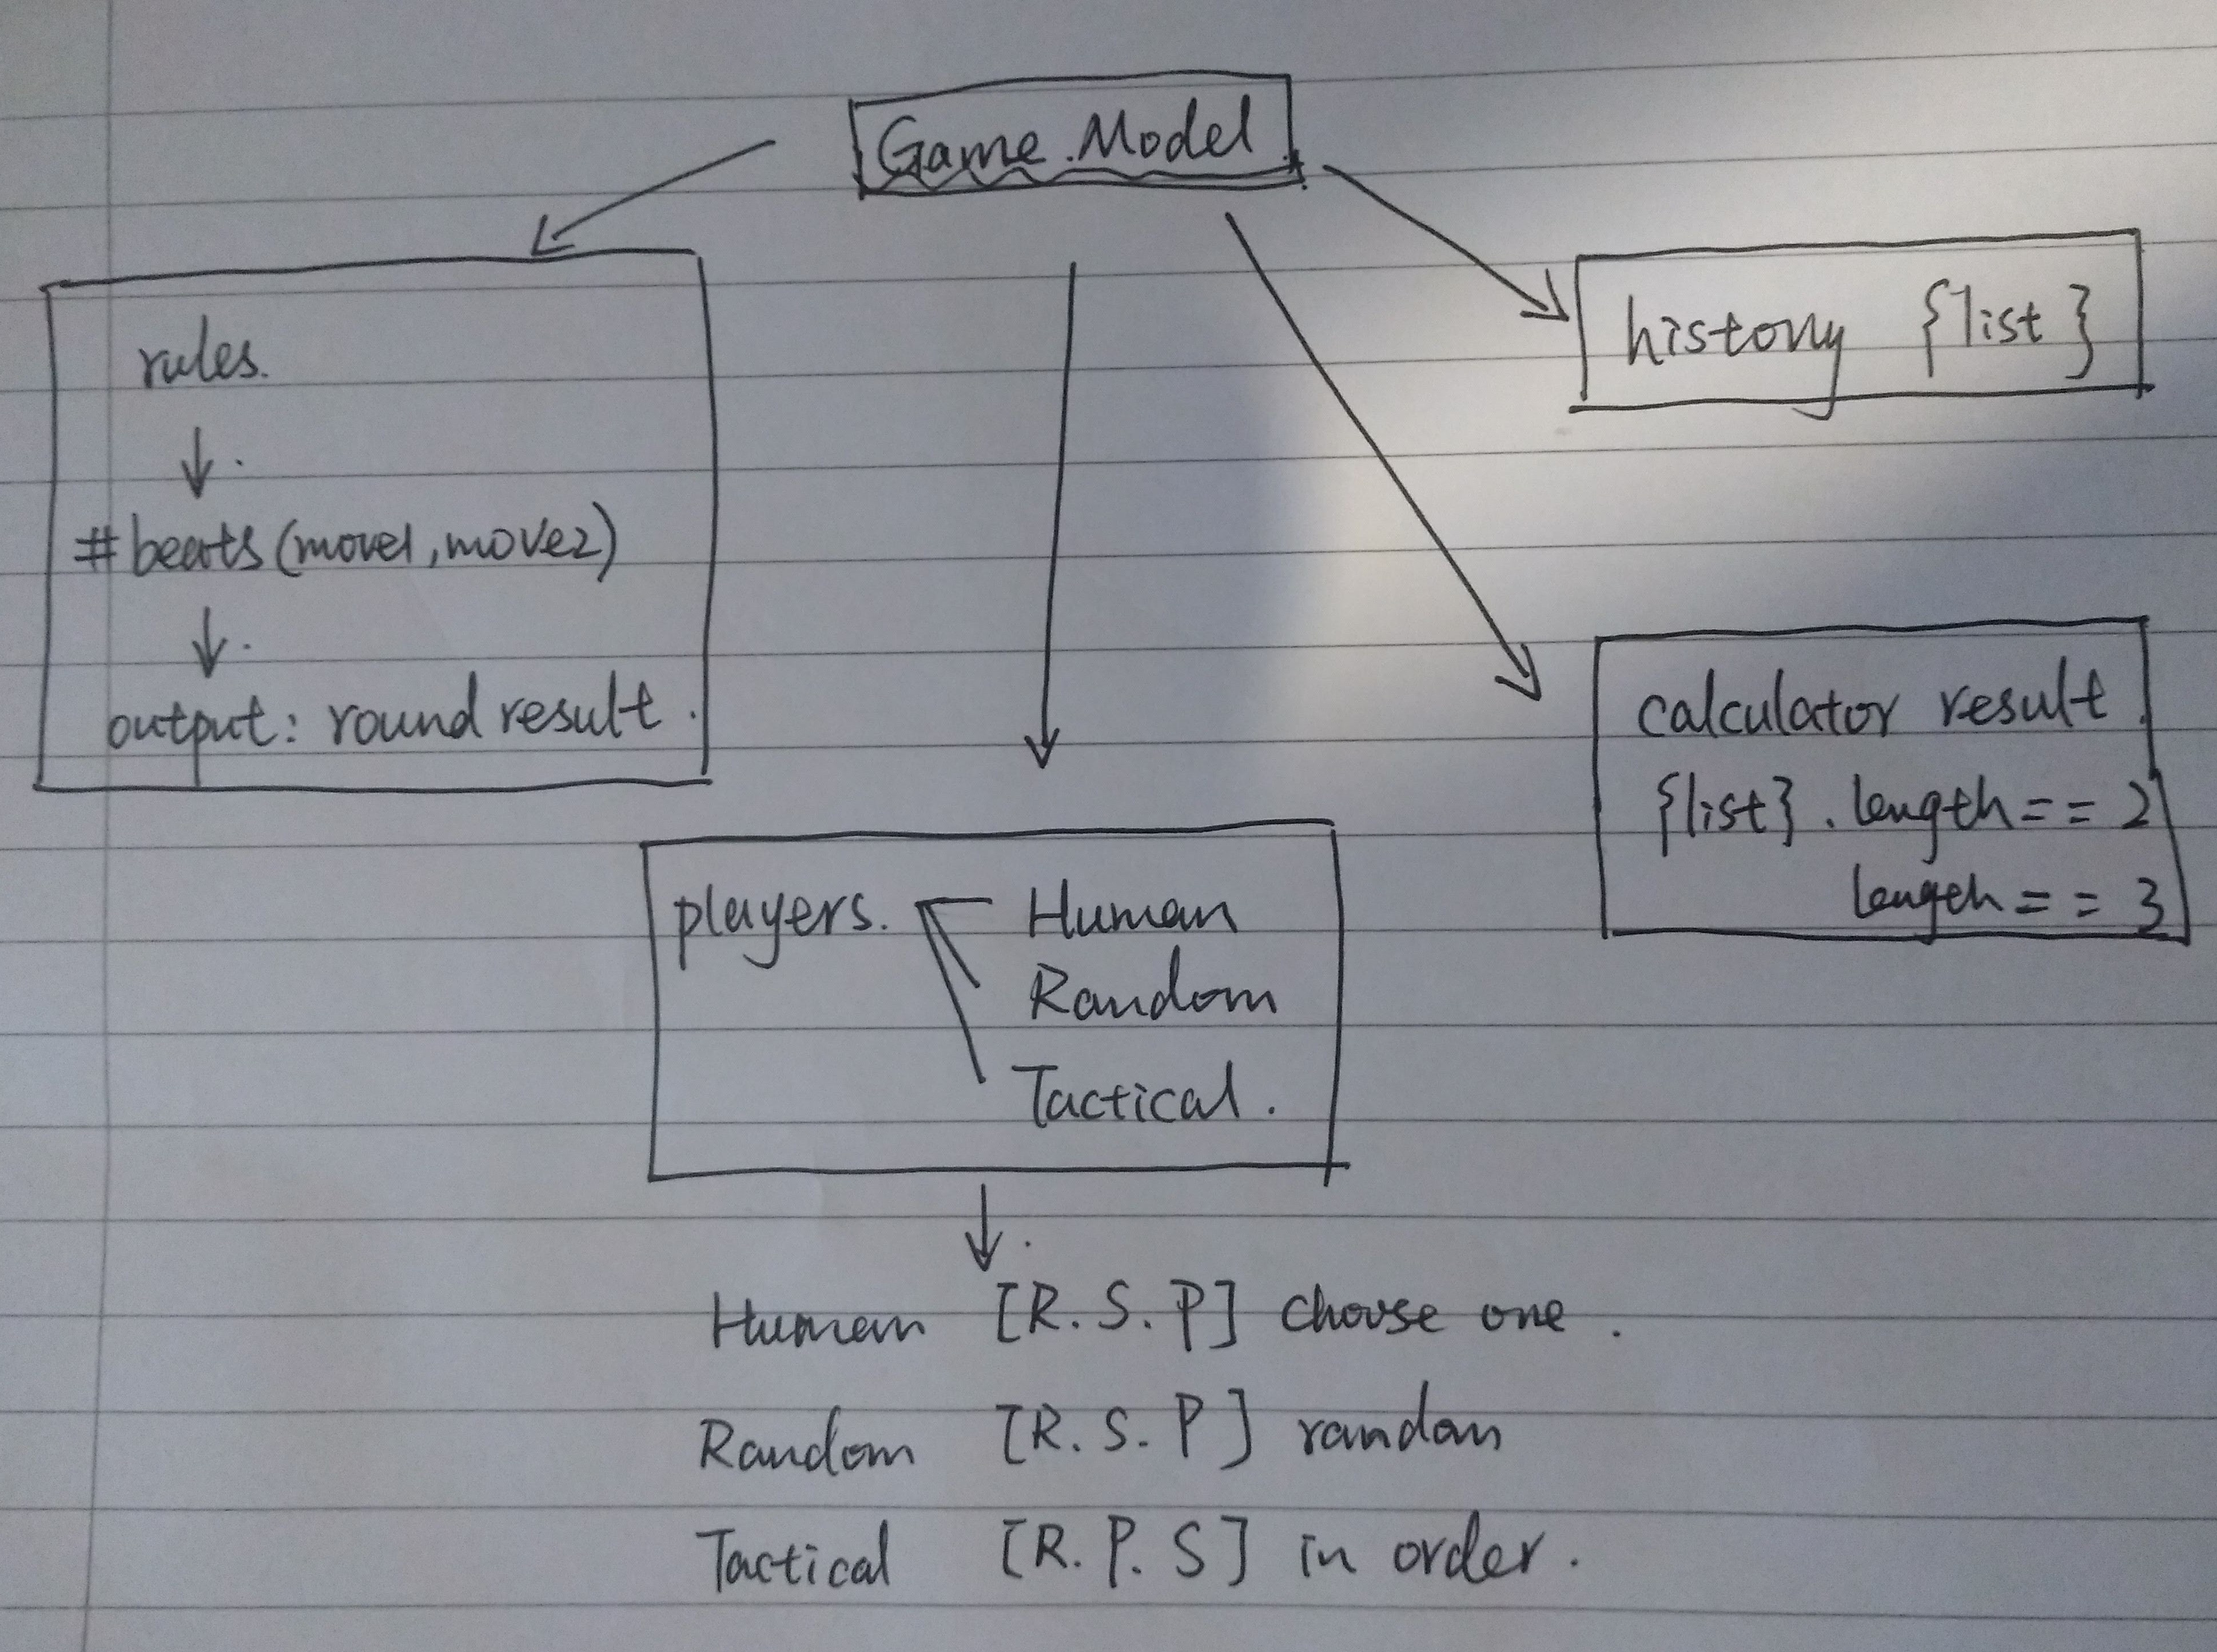 Game.Model
rules.
#beats(move1, move2)
output: round result.
history {list}
calculator result.
{list}.length == 2
length == 3
players. Human
Random
Tactical.
Human [R.S.P] choose one.
Random [R.S.P] random
Tactical [R.P.S] in order.